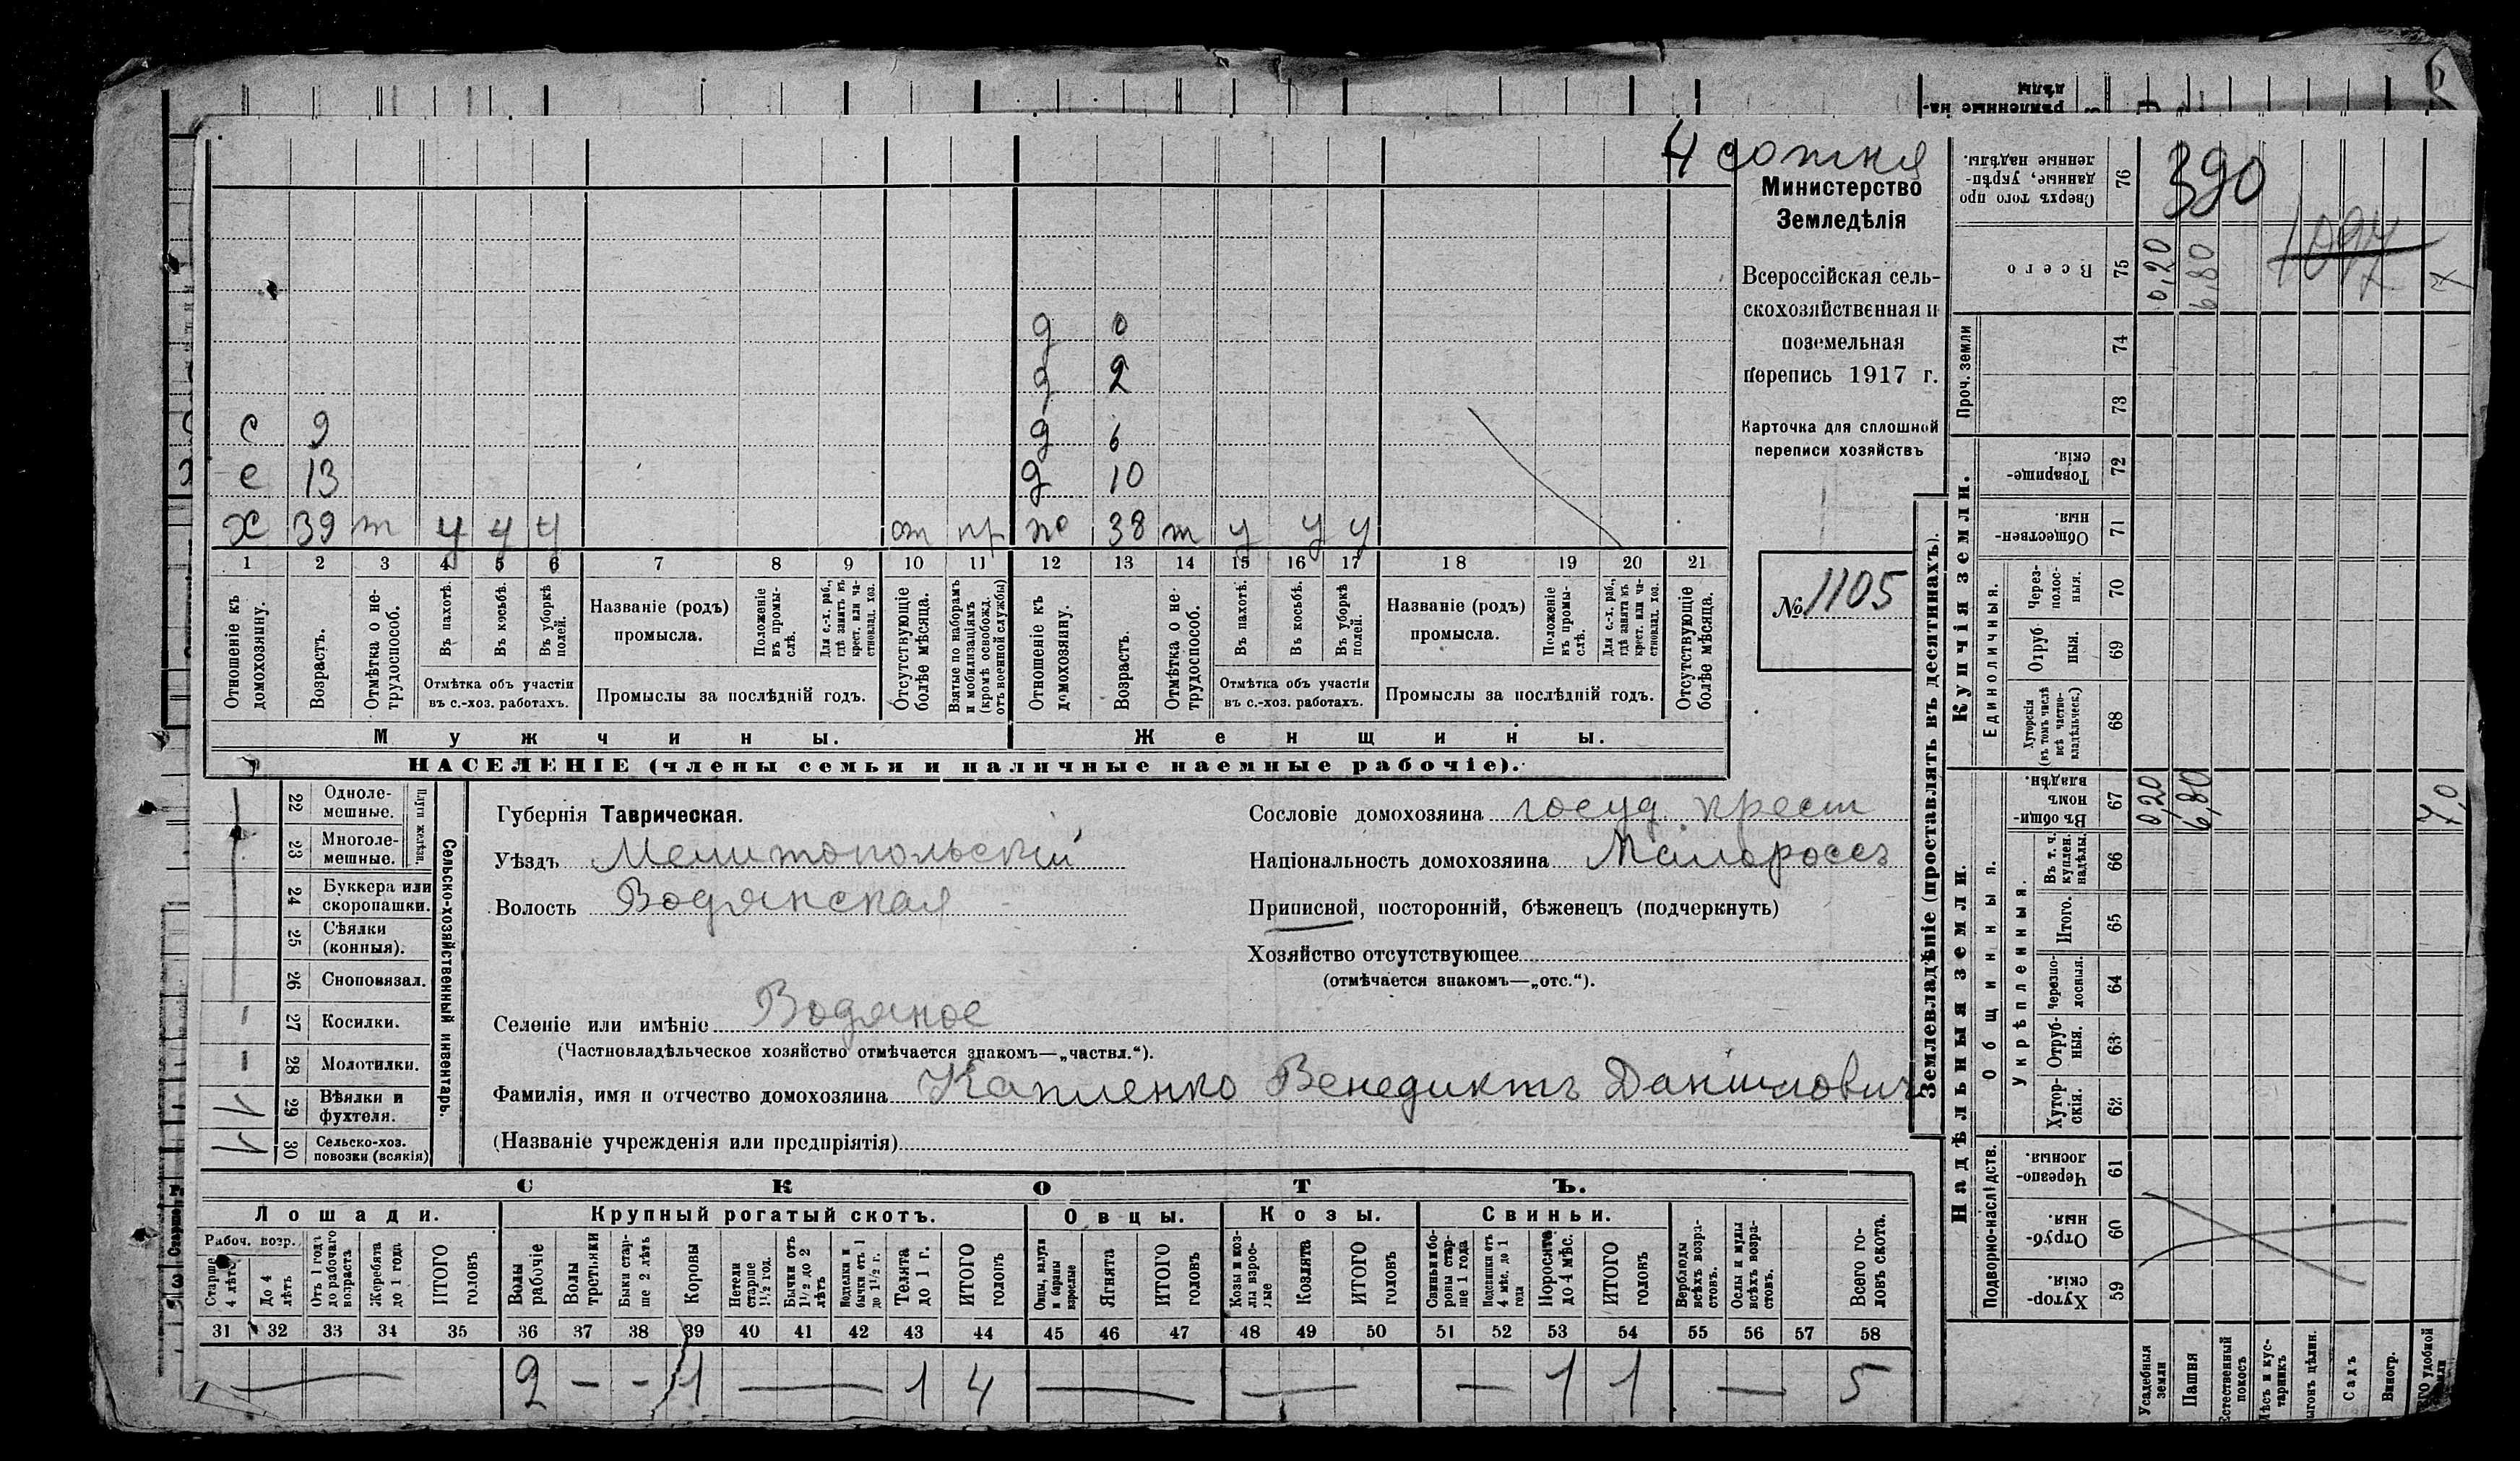 4 сотня
Министерство
Земледѣлія
Всероссійская сель-
скохозяйственная и
поземельная
перепись 1917 г.
Карточка для сплошной
переписи хозяйствъ
№ 1105
д 0
д 2
с 9 д 6
с 13 д 10
х 39 т у у у от пр ж 38 т у у у
1 2 3 4 5 6 7 8 9 10 11 12 13 14 15 16 17 18 19 20 21
Отношеніе къ домохозяину.
Возрастъ.
Отмѣтка о не-трудоспособ.
Въ пахотѣ.
Въ косьбѣ.
Въ уборкѣ полей.
Отмѣтка объ участіи
въ с.-хоз. работахъ.
Названіе (родъ)
промысла.
Положеніе въ промы-слѣ.
Для с.-х. раб., гдѣ занятъ въ крест. или ча-стновлад. хоз.
Промыслы за послѣдній годъ.
Отсутствующіе болѣе мѣсяца.
Взятые по наборамъ и мобилизаціямъ (кромѣ освобожд. отъ военной службы)
Отношеніе къ домохозяину.
Возрастъ.
Отмѣтка о не-трудоспособ.
Въ пахотѣ.
Въ косьбѣ.
Въ уборкѣ полей.
Отмѣтка объ участіи
въ с.-хоз. работахъ.
Названіе (родъ)
промысла.
Положеніе въ промы-слѣ.
Для с.-х. раб., гдѣ занята въ крест. или ча-стновлад. хоз.
Промыслы за послѣдній годъ.
Отсутствующіе болѣе мѣсяца.
Мужчины. Женщины.
НАСЕЛЕНІЕ (члены семьи и наличные наемные рабочіе).
22 Одноле-мешные.
23 Многоле-мешные.
Плуги желѣзн.
24 Буккера или скоропашки.
25 Сѣялки (конныя).
26 Сноповязал.
27 Косилки.
28 Молотилки.
29 Вѣялки и фухтеля.
30 Сельско-хоз. повозки (всякія)
Сельско-хозяйственный инвентарь.
Губернія Таврическая.
Уѣздъ Мелитопольскій
Волость Водянская
Селеніе или имѣніе Водяное
(Частновладѣльческое хозяйство отмѣчается знакомъ—„частвл.“).
Фамилія, имя и отчество домохозяина Капленко Венедиктъ Даниловичъ
(Названіе учрежденія или предпріятія)
Сословіе домохозяина госуд. крест
Національность домохозяина Малороссъ
Приписной, посторонній, бѣженецъ (подчеркнуть)
Хозяйство отсутствующее
(отмѣчается знакомъ—„отс.“).
СКОТЪ.
Лошади. Крупный рогатый скотъ. Овцы. Козы. Свиньи.
Рабоч. возр.
Старше 4 лѣтъ
До 4 лѣтъ
Отъ 1 года до рабочаго возраста
Жеребята до 1 года
ИТОГО головъ
Волы рабочіе
Волы третьяки
Быки стар-ше 2 лѣтъ
Коровы
Нетели старше 1½ год.
Бычки отъ 1½ до 2 лѣтъ
Подтелки и бычки отъ 1 до 1½ г.
Телята до 1 г.
ИТОГО головъ
Овцы, валухи и бараны взрослые
Ягнята
ИТОГО головъ
Козы и коз-лы взрос-лые
Козлята
ИТОГО головъ
Свиньи и бо-ровы стар-ше 1 года
Подсвинки отъ 4 мѣс. до 1 года
Поросята до 4 мѣс.
ИТОГО головъ
Верблюды всѣхъ возра-стовъ.
Ослы и мулы всѣхъ возра-стовъ.
Всего го-ловъ скота.
31 32 33 34 35 36 37 38 39 40 41 42 43 44 45 46 47 48 49 50 51 52 53 54 55 56 57 58
— 2 – – 1 — 1 4 — — — 1 1 — 5
Землевладѣніе (проставлять въ десятинахъ).
Сверхъ того про данные, укрѣп-ленные надѣлы. 76 390
Всего 75 0,20 6,80 1094 7
Проч. земли 74
73
Купчія земли.
Товарище-скія. 72
Обществен-ныя. 71
Единоличныя.
Через-полос-ныя. 70
Отруб ныя. 69
Хуторскія (въ томъ числѣ всѣ частно-владѣльческ.) 68
Надѣльныя земли.
Общинныя.
Въ общи-номъ владѣн. 67 0,20 6,80 7,0
Укрѣпленныя.
Въ т. ч. куплен. надѣлы. 66
Итого. 65
Черезпо-лосныя. 64
Отруб-ныя. 63
Хутор-скія. 62
Подворно-наслѣдств.
Черезпо-лосныя. 61
Отруб-ныя. 60
Хутор-скія. 59
Усадебныя земли
Пашня
Естественный покосъ
Лѣсъ и кус-тарникъ
Садъ
Виногр.